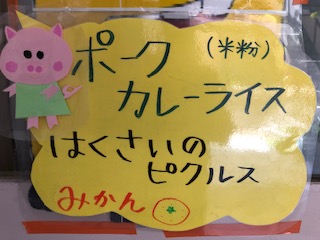 ポーク（米粉）
カレーライス
はくさいの
ピクルス
みかん